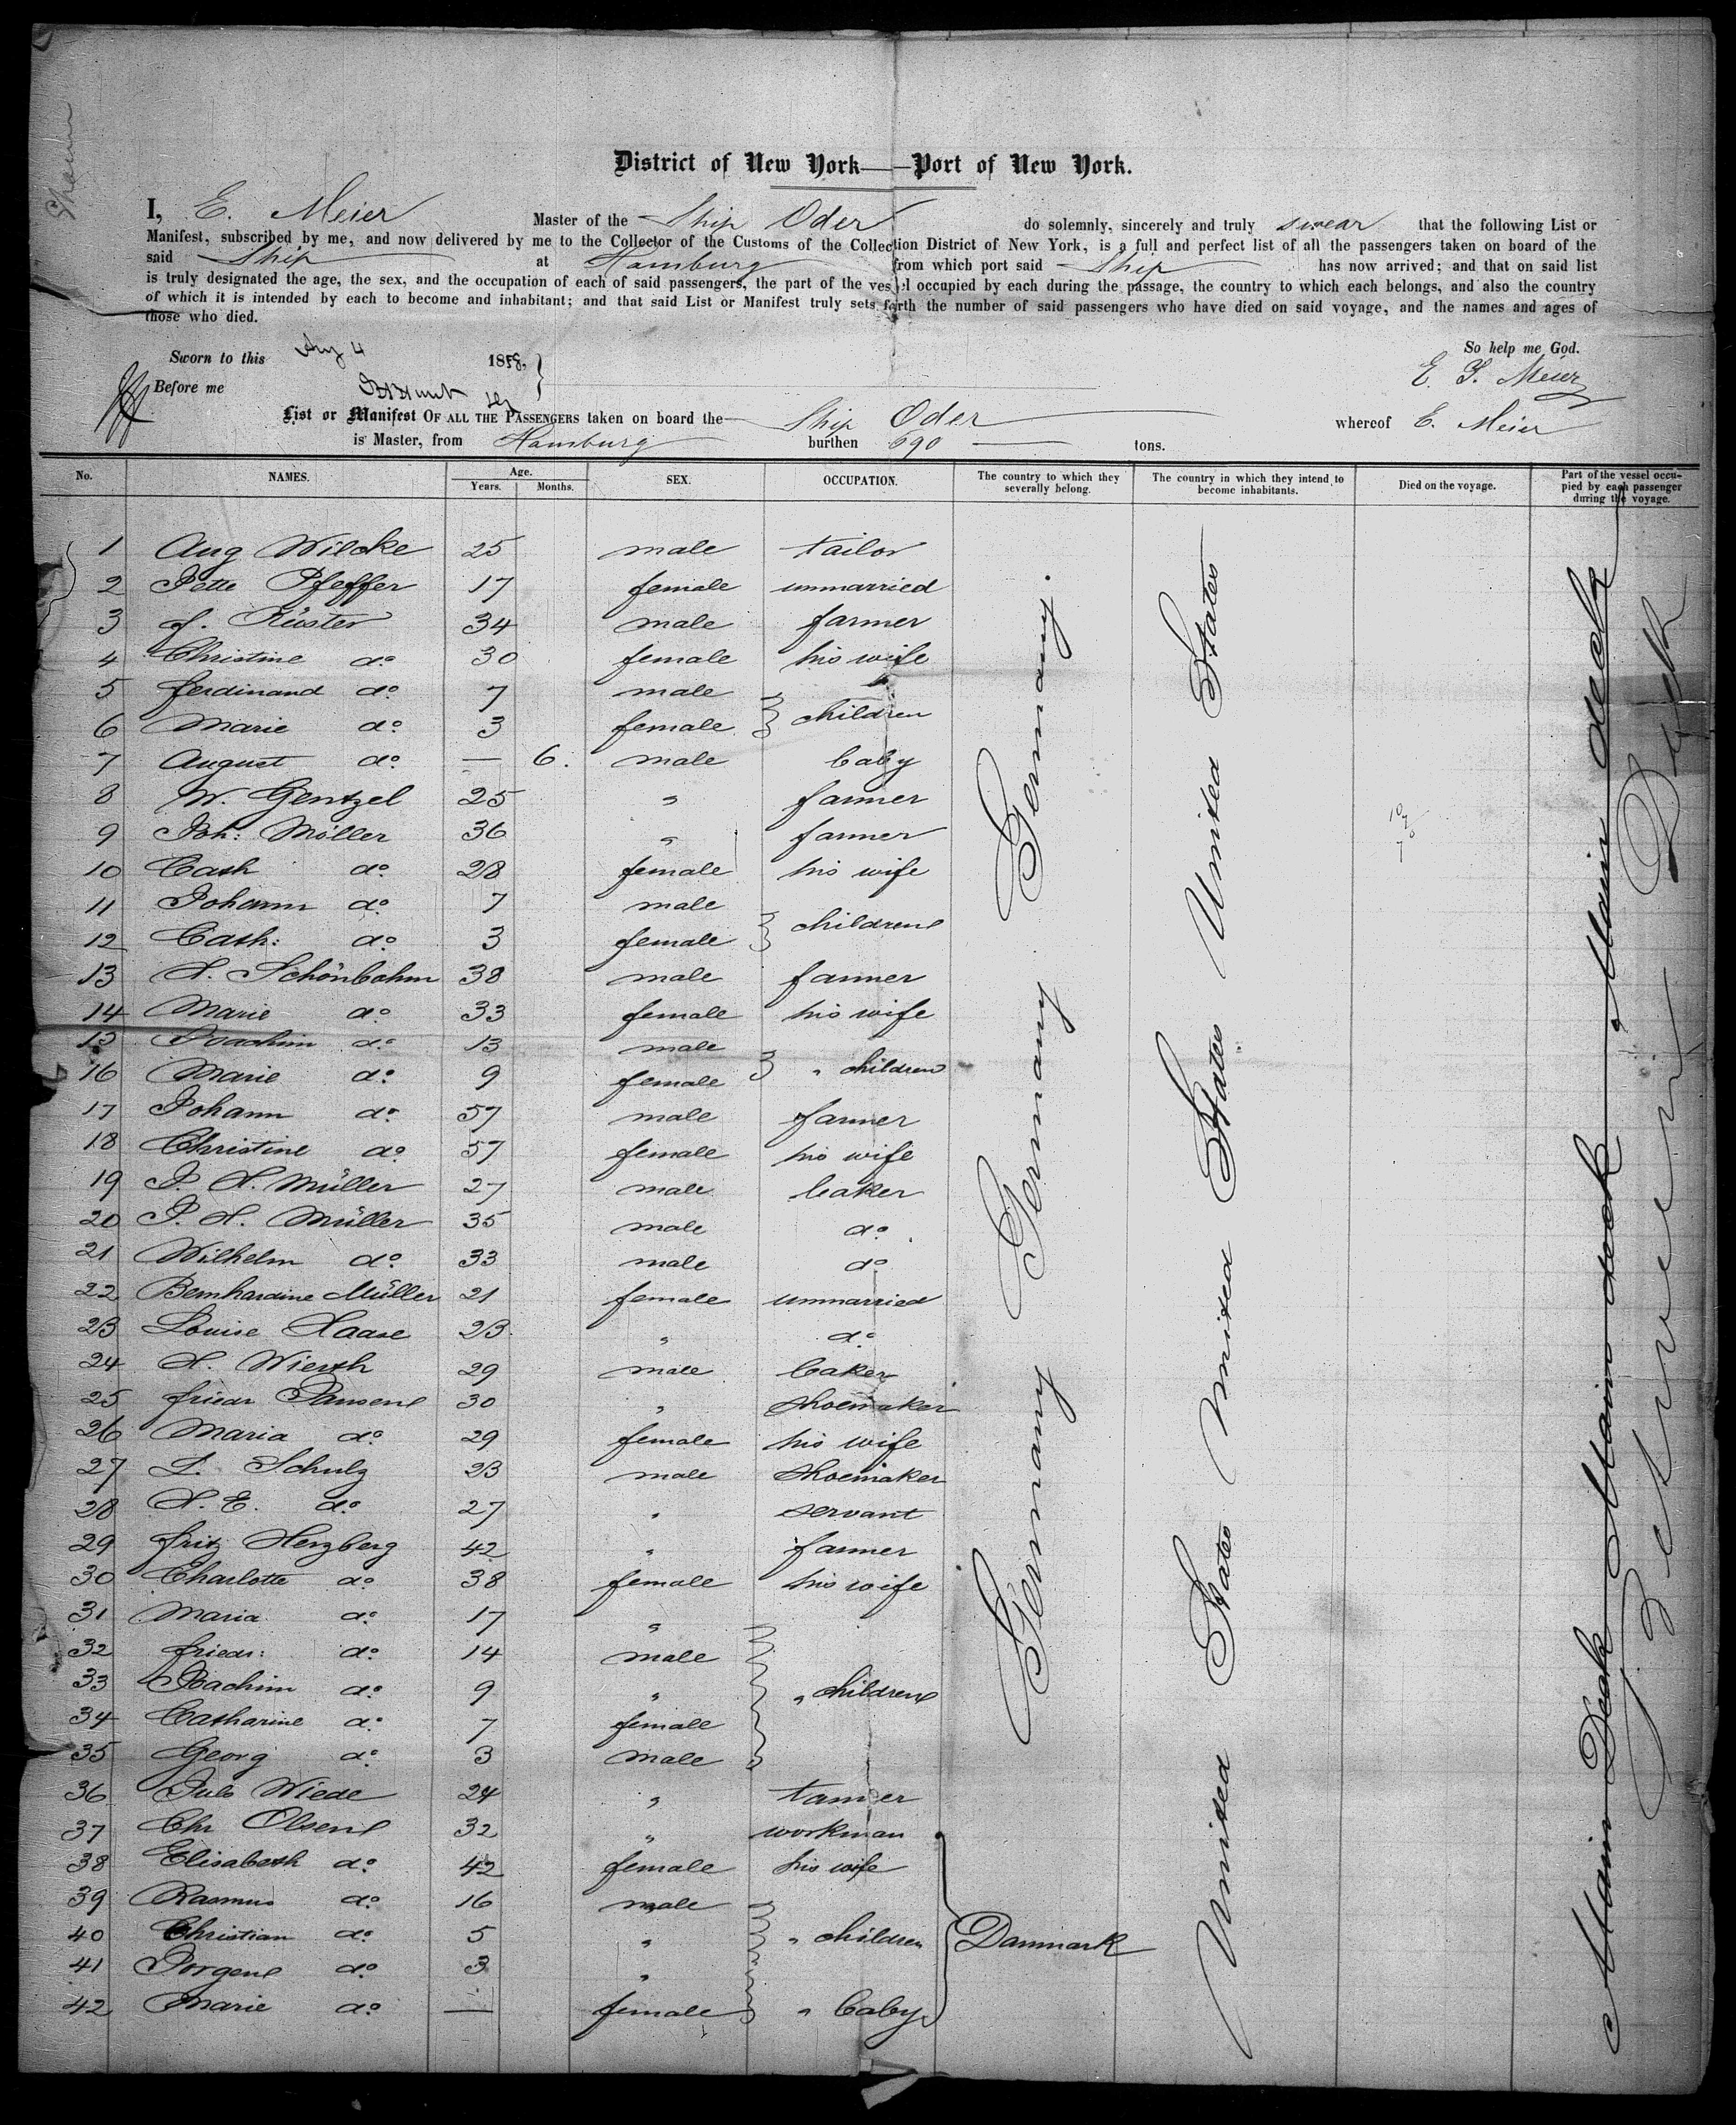 District of New York—Port of New York.
I, E. Meier Master of the Ship Oder do solemnly, sincerely and truly swear that the following List or
Manifest, subscribed by me, and now delivered by me to the Collector of the Customs of the Collection District of New York, is a full and perfect list of all the passengers taken on board of the
said Ship at Hamburg from which port said Ship has now arrived; and that on said list
is truly designated the age, the sex, and the occupation of each of said passengers, the part of the vessel occupied by each during the passage, the country to which each belongs, and also the country
of which it is intended by each to become and inhabitant; and that said List or Manifest truly sets forth the number of said passengers who have died on said voyage, and the names and ages of
those who died.
So help me God.
Sworn to this Aug 4 1858.
E. Meier
Before me
List or Manifest OF ALL THE PASSENGERS taken on board the Ship Oder whereof E. Meier
is Master, from Hamburg burthen 690 tons.
No. NAMES. Age. Years. Months. SEX. OCCUPATION. The country to which they severally belong. The country in which they intend to become inhabitants. Died on the voyage. Part of the vessel occupied by each passenger during the voyage.
1 Aug Wilcke 25 male tailor
2 Jette Pfeffer 17 female unmarried
3 J. Rüster 34 male farmer
4 Christine do 30 female his wife
5 Ferdinand do 7 male
6 Marie do 3 female children
7 August do — 6. male baby
8 W. Gentzel 25 " farmer
9 Joh: Möller 36 " farmer
10 Cath do 28 female his wife
11 Johann do 7 male
12 Cath: do 3 female children
13 H. Schönbohm 38 male farmer
14 Marie do 33 female his wife
15 Joachim do 13 male
16 Marie do 9 female " children
17 Johann do 57 male farmer
18 Christine do 57 female his wife
19 J. H. Müller 27 male baker
20 J. H. Müller 35 male do
21 Wilhelm do 33 male do
22 Bernhardine Müller 21 female unmarried
23 Louise Haase 23 " do
24 H. Wierth 29 male baker
25 Friedr Jansen 30 " shoemaker
26 Maria do 29 female his wife
27 L. Schulz 23 male shoemaker
28 H. E. do 27 " servant
29 Fritz Herzberg 42 " farmer
30 Charlotte do 38 female his wife
31 Maria do 17 "
32 Friedr: do 14 male
33 Joachim do 9 " " children
34 Catharine do 7 female
35 Georg do 3 male
36 Juls Wiede 24 " tanner
37 Chr Olsen 32 " workman
38 Elisabeth do 42 female his wife
39 Rasmus do 16 male
40 Christian do 5 " " children Danmark
41 Jorgen do 3 "
42 Marie do — female " baby
Germany Germany Germany Germany.
United States United States United States
Main Deck Main deck Main deck
Between Deck